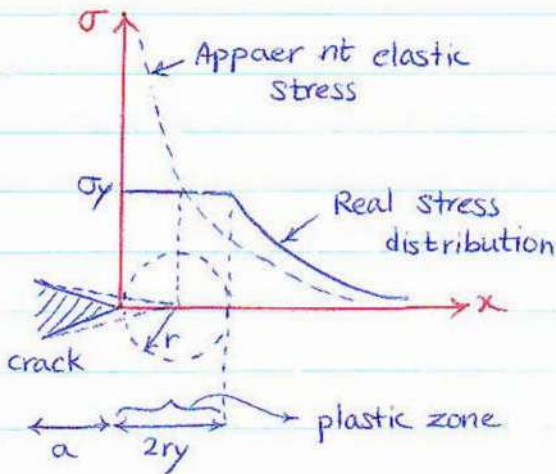 σ
Appaer nt elastic
stress
σy
Real stress
distribution
x
r
crack
plastic zone
a
2ry